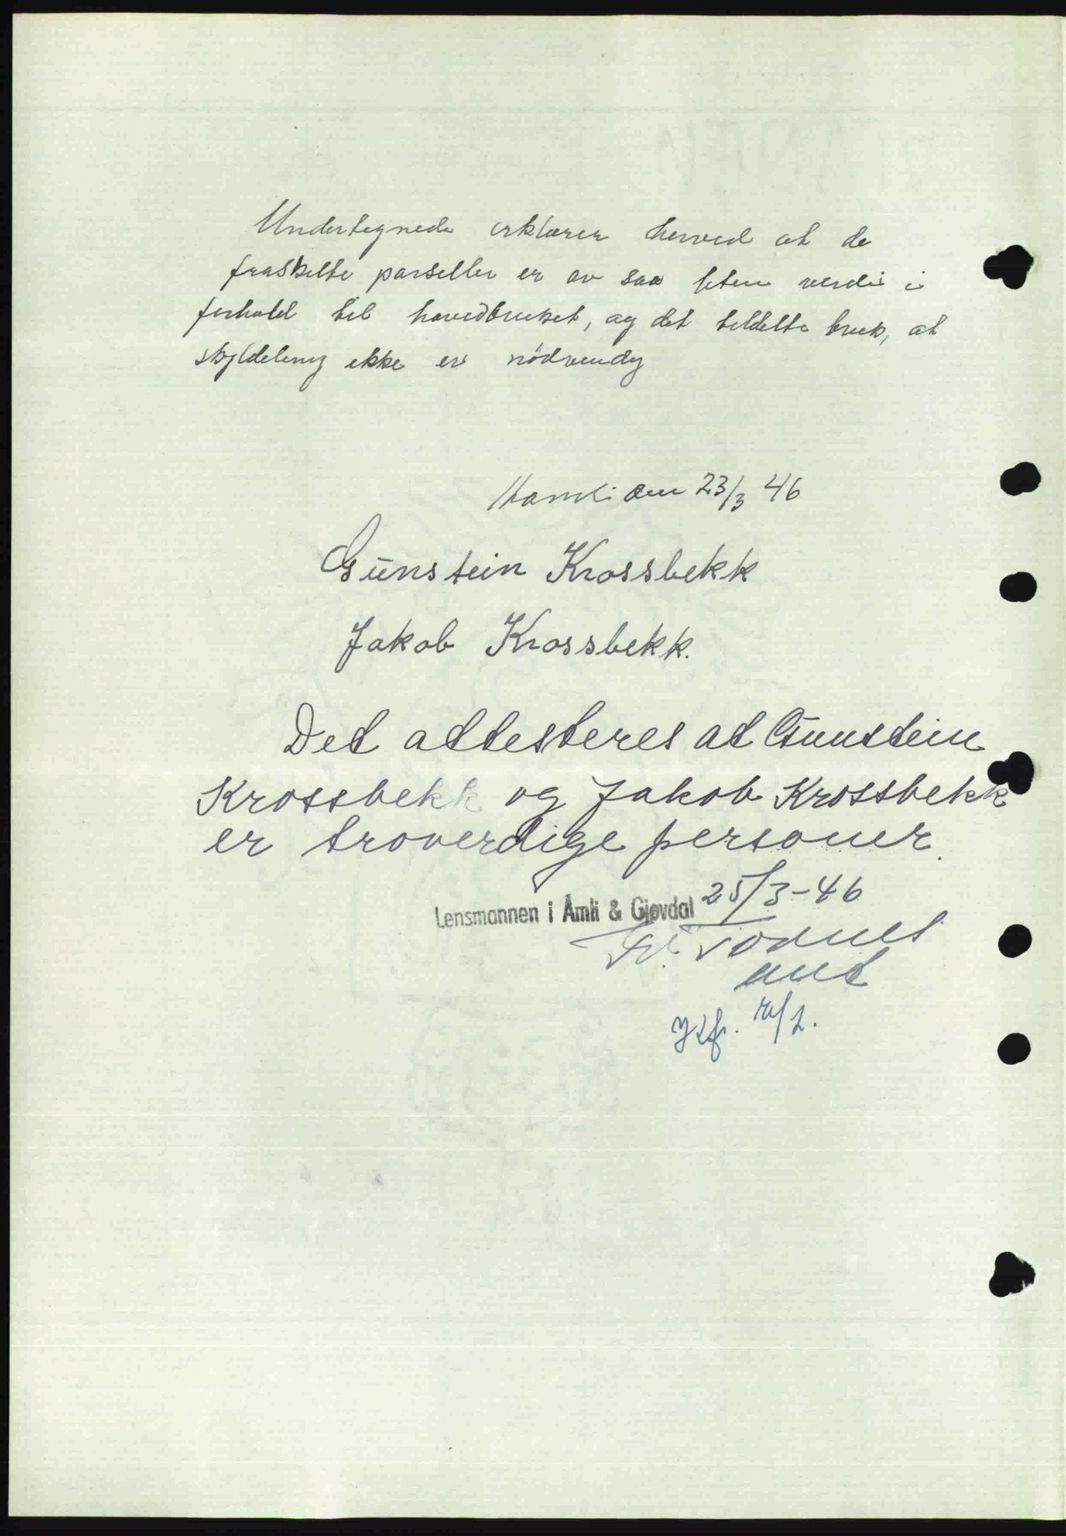 Undertegnede erklærer herved at de
fraskilte parseller er av saa liten verdi i
forhold til hovedbruket, og det tildelte bruk, at
skyldeling ikke er nödvendig
den 23/3 46
Gunstein Krossbekk
Jakob Krossbekk.
Det attesteres at Gunstein
Krossbekk og Jakob Krossbekk
er troverdige personer.
Lensmannen i Åmli & Gjøvdal 25/3-46